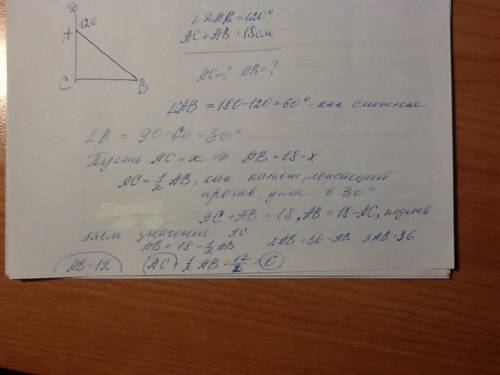 D
A 120
C B
∠DAB = 120°
AC + AB = 18 см
AC-? AB = ?
∠AB = 180 - 120 = 60° - как смежные
∠B = 90 - 60 = 30°
Пусть AC = x ⇒ AB = 18 - x
AC = ½ AB, как катет, лежащий
против угла в 30°
AC + AB = 18, AB = 18 - AC, подстав
ляем значение AC
AB = 18 - ½ AB 2AB = 36 - AB 3AB = 36
AB = 12 AC = ½ AB = 12/2 = 6